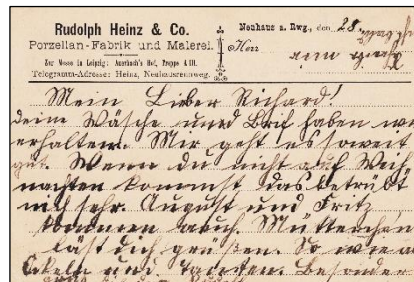 Rudolph Heinz & Co.
Porzellan-Fabrik und Malerei.
Zur Messe in Leipzig: Auerbach's Hof, Treppe
Telegramm-Adresse: Heinz, Neuhausrennweg.
Neuhaus a. Rwg., den 28.
Herr
Mein Lieber Richard!
deine Wäsche und Brif haben wir
erhalten. Mir geht es soweit
gut. Wenn du nicht auf Weih
nachten kommst das betrübt
mich sehr. August und Fritz
kommen auch. Mütterchen
läst dich grüßen. So wie
und Tanten. Besonder